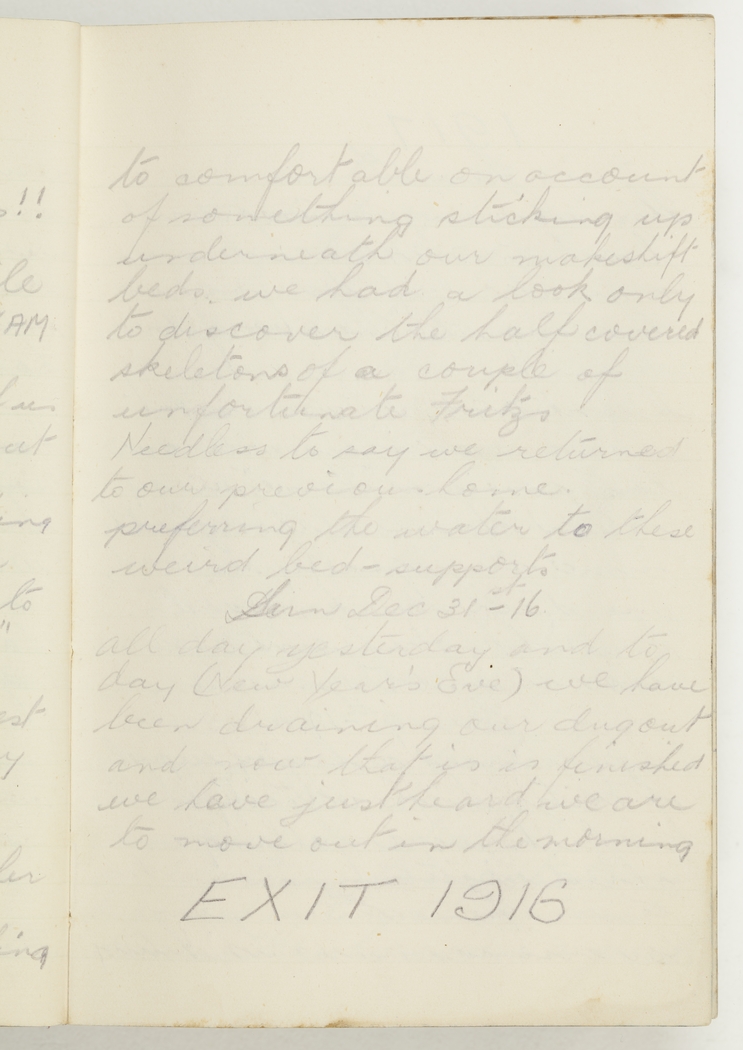 to comfortable on account
of something sticking up
underneath our makeshift
beds. we had a look only
to discover the half covered
skeletons of a couple of
unfortunate Fritzs
Needless to say we returned
to our previous home.
preferring the water to these
weird bed-supports
Sun Dec 31st-16.
all day yesterday and to
day (New Year's Eve) we have
been draining our dugout
and now that is is finished
we have just heard we are
to move out in the morning
EXIT 1916